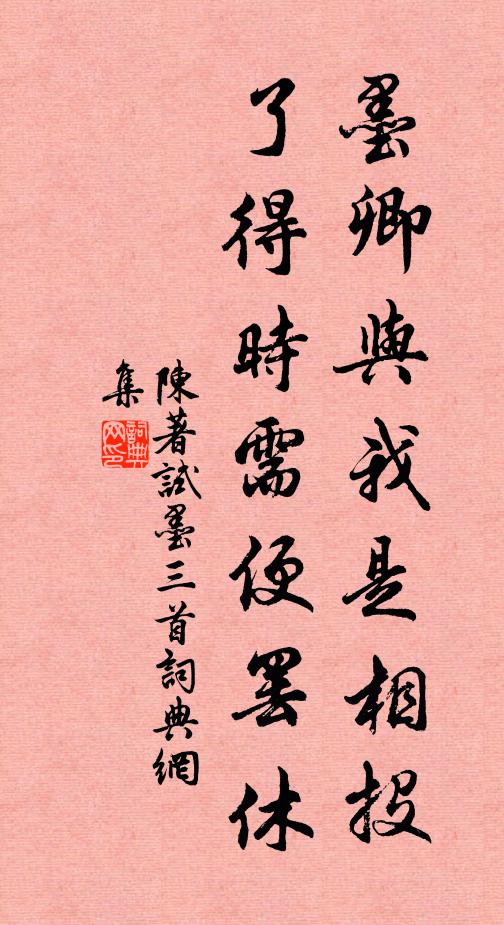 墨卿與我是相投
了得時需便罷休
陳著試墨三首詞典網
集
詞典
网印